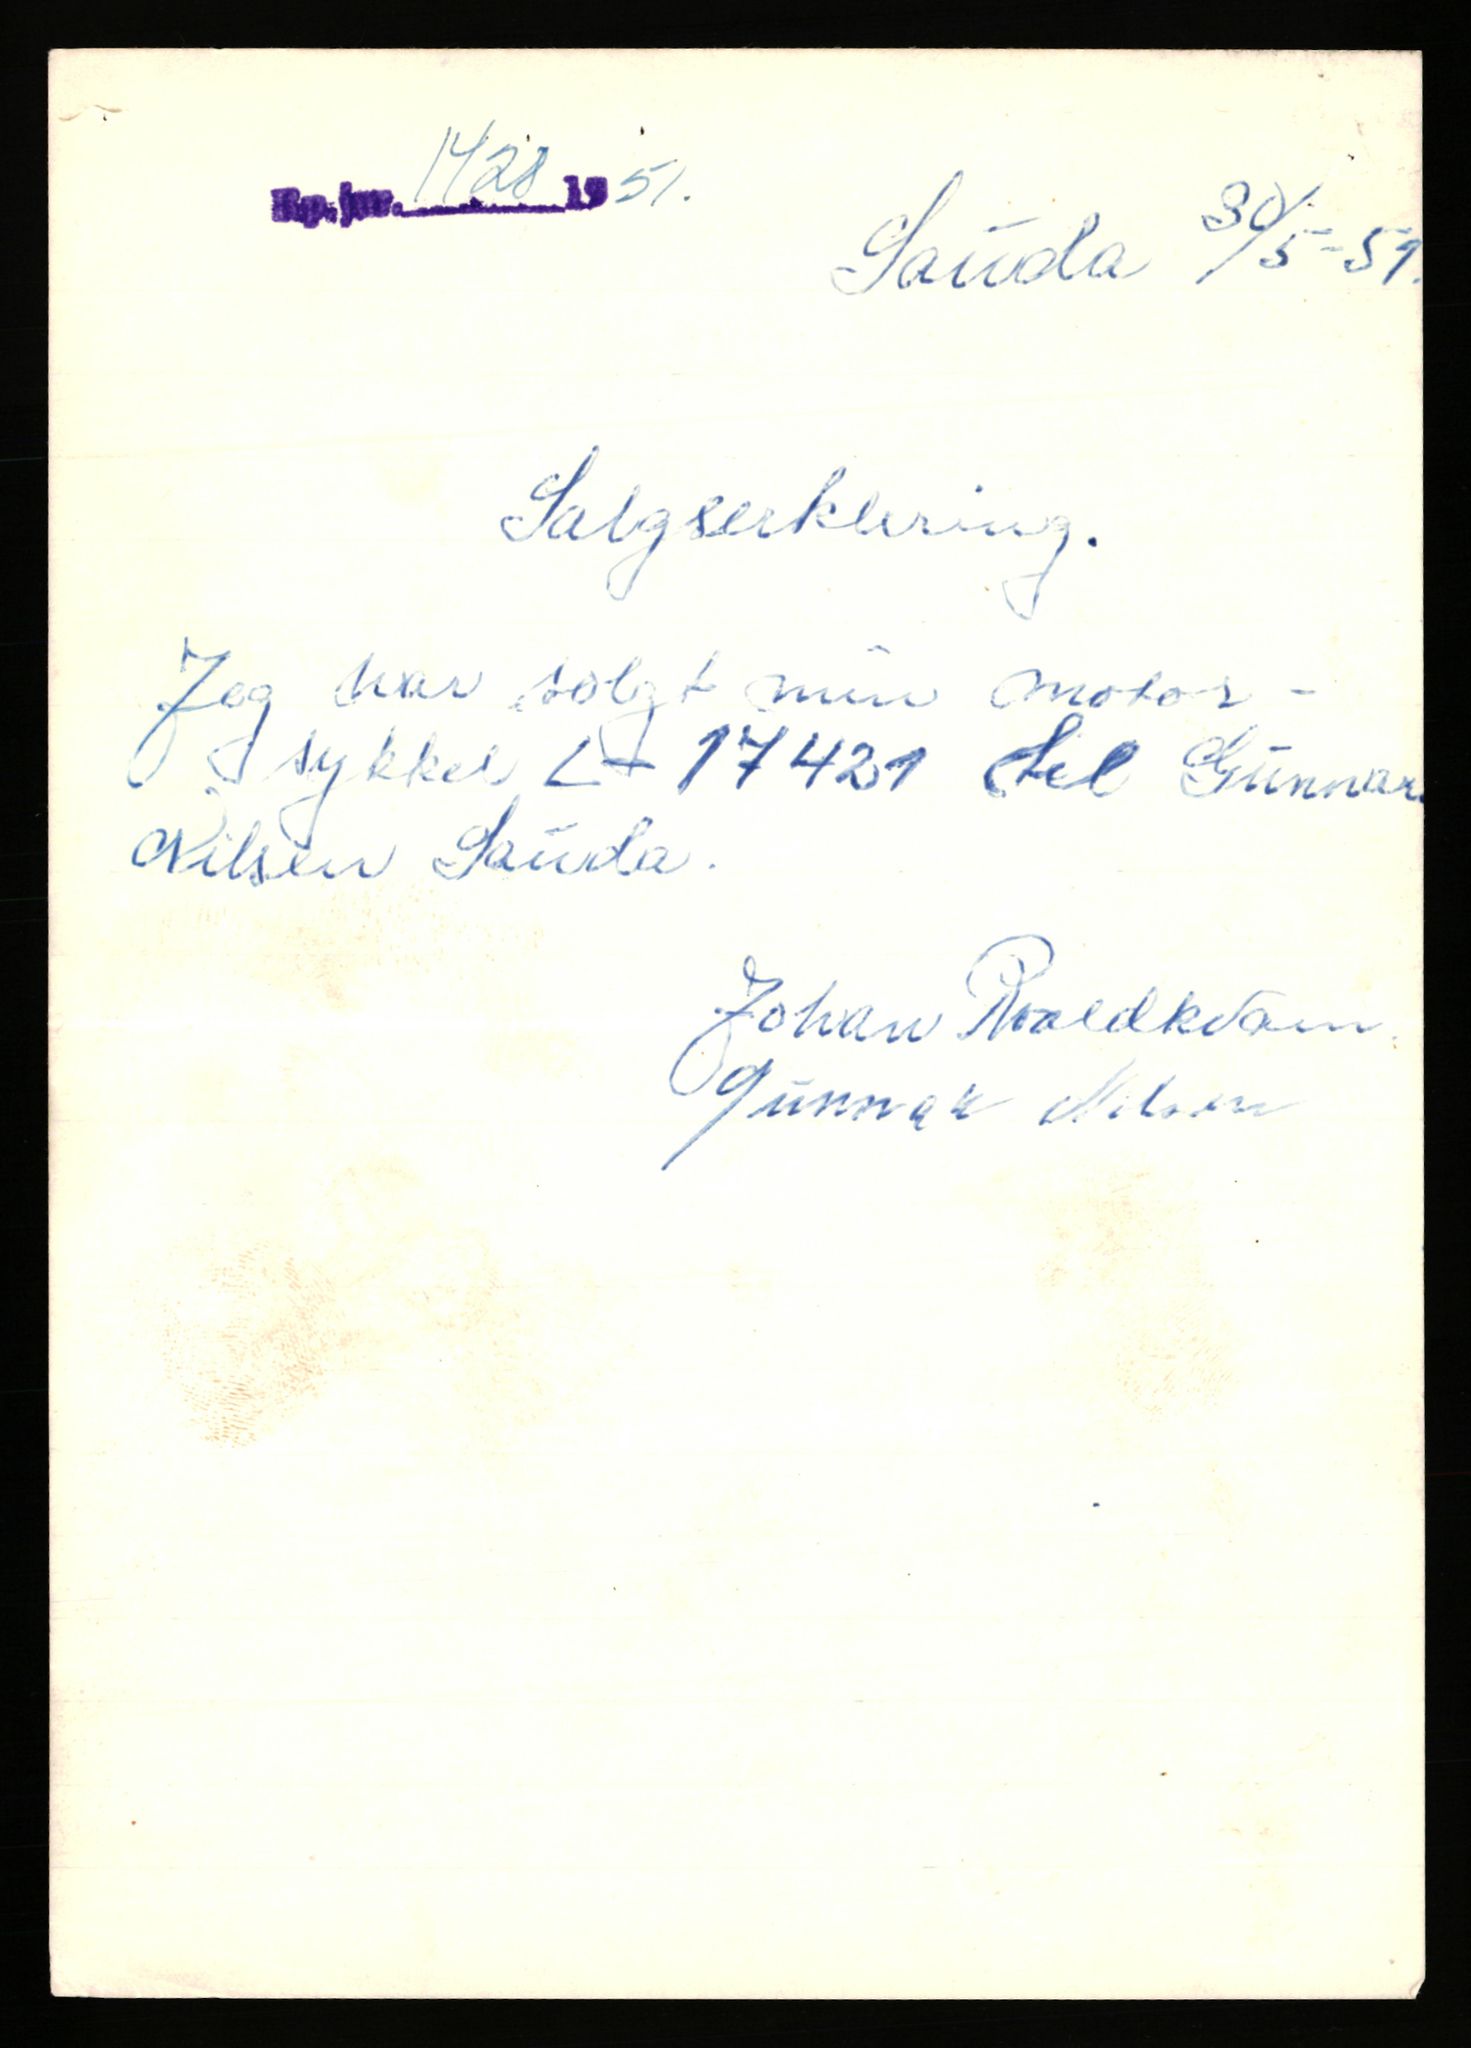 Rp.jnr. 1428 1951.
Sauda 30/5-51.
Salgserklering.
Jeg har solgt min motor-
sykkel L-17421 til Gunnar
Nilsen Sauda.
Johan Roaldkvam.
Gunnar Nilsen